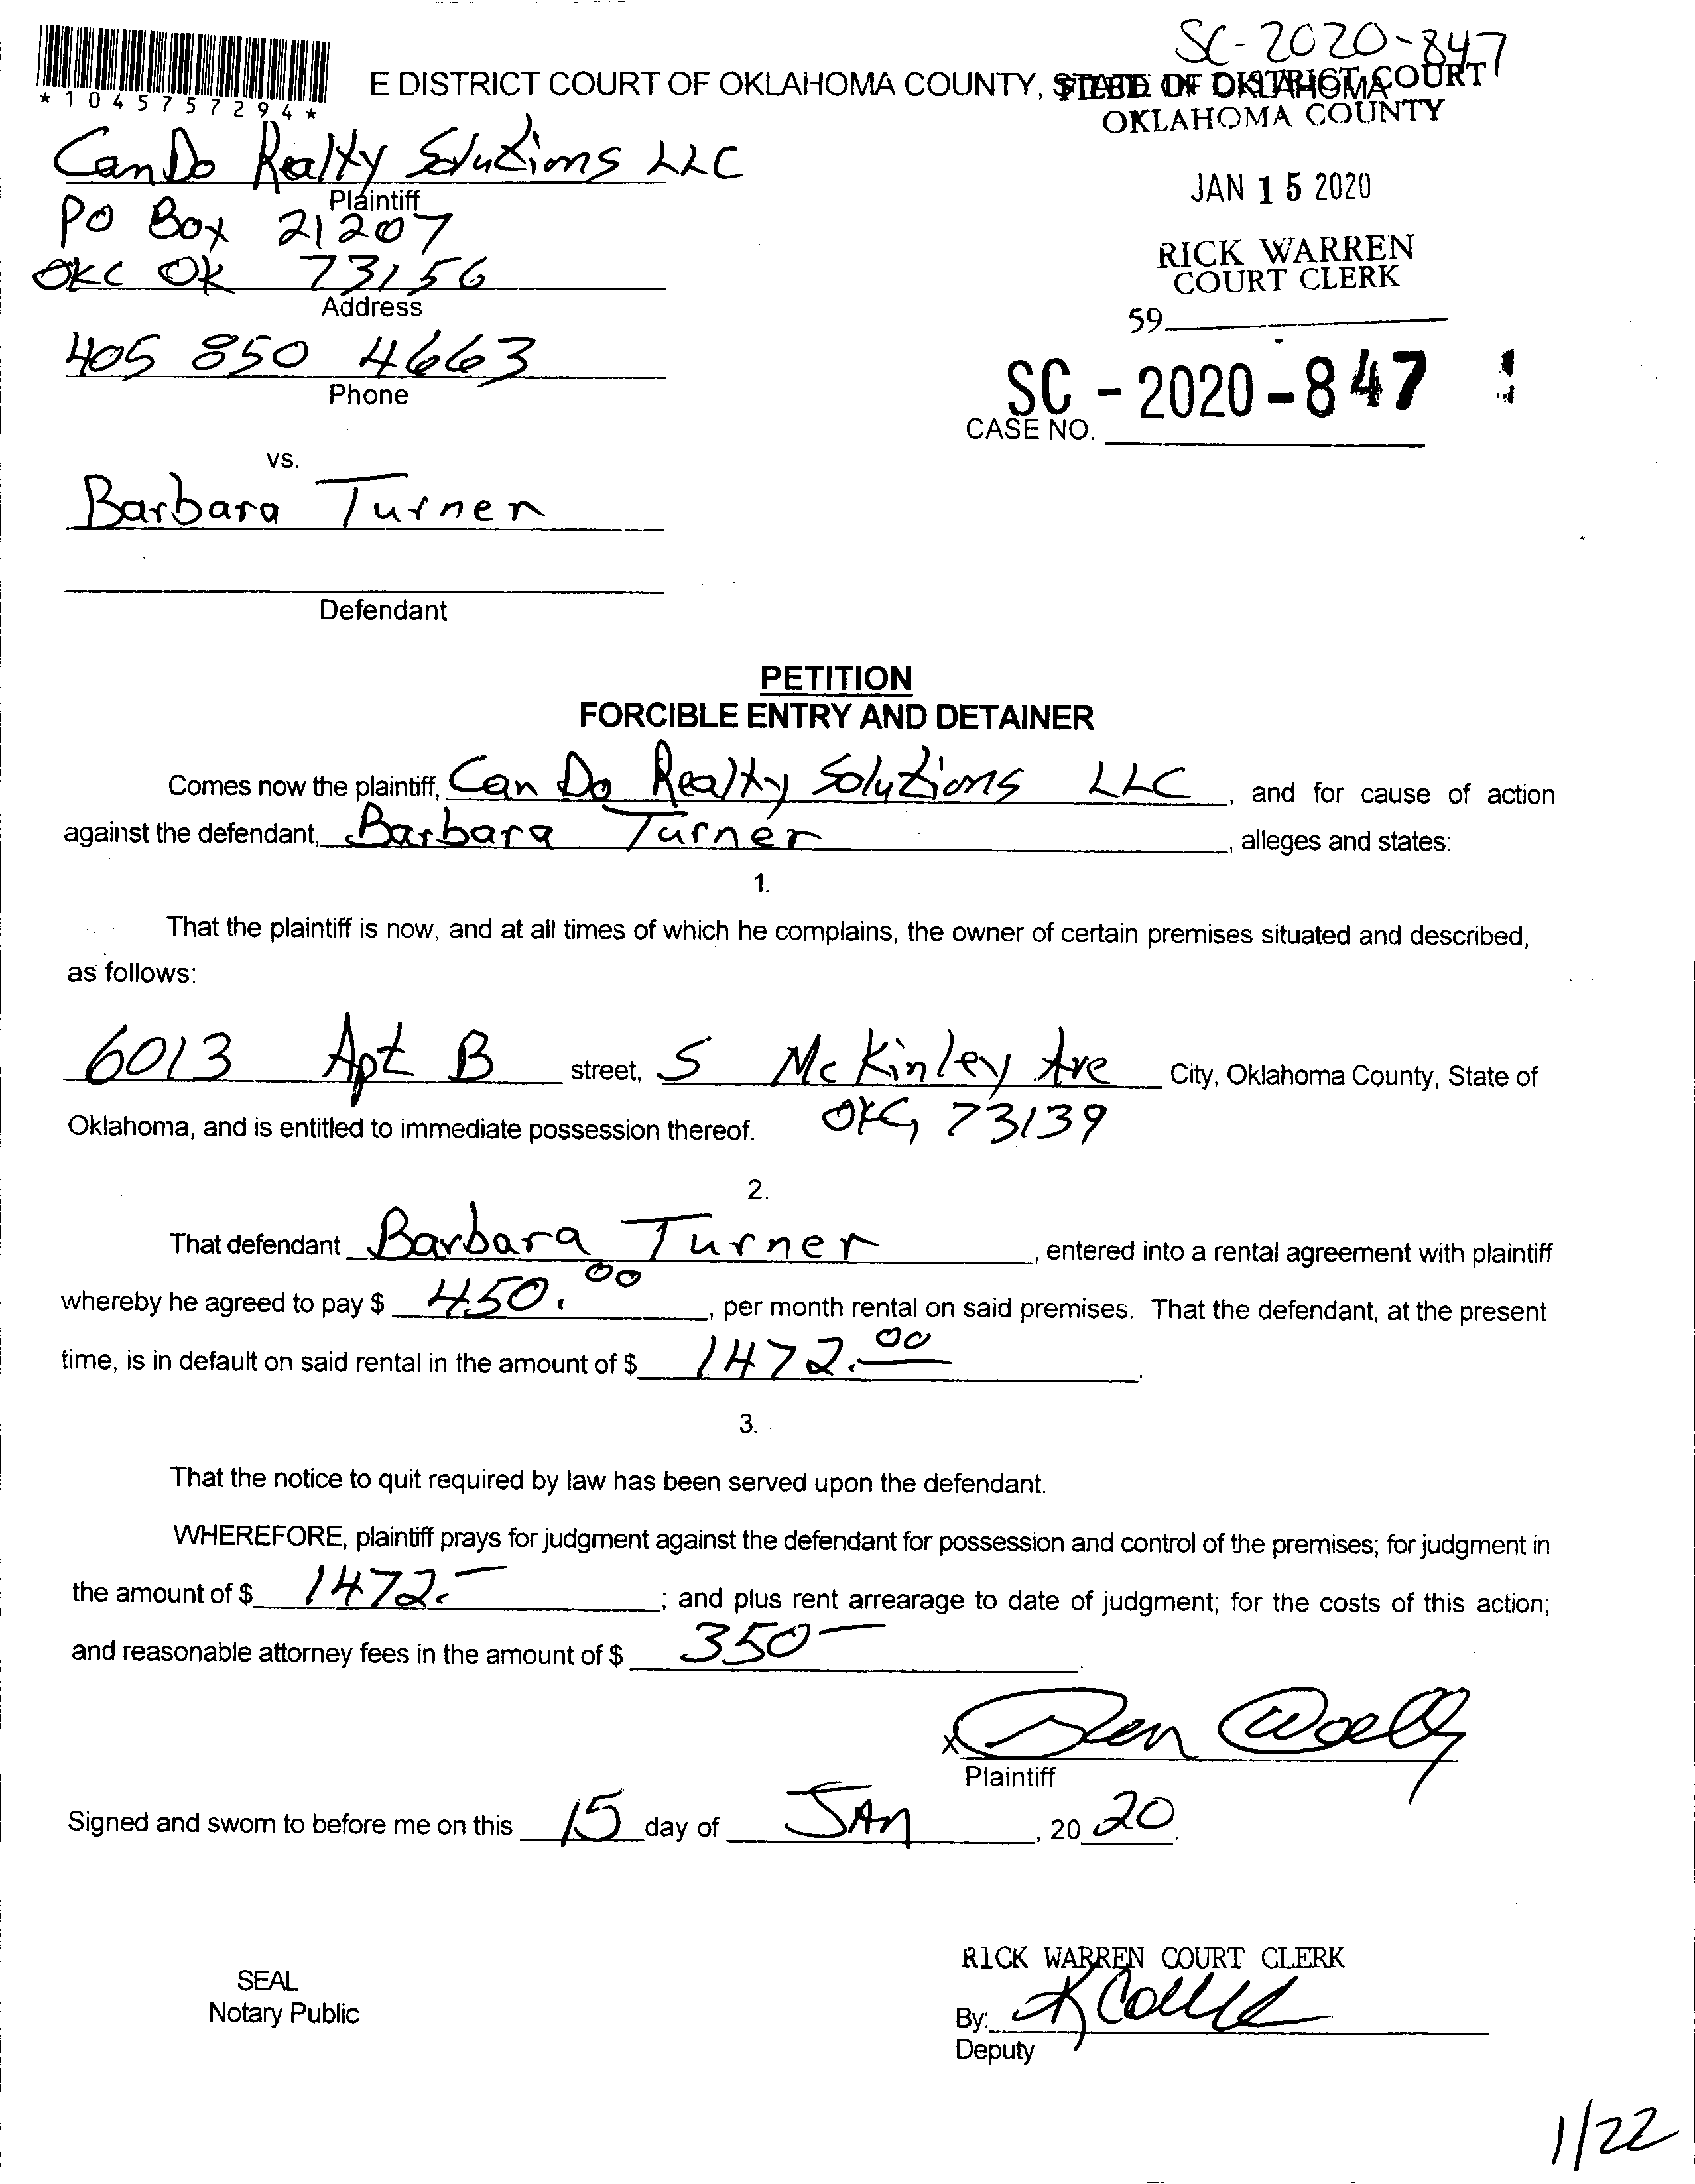 SC-2020-847
*1045757294*
E DISTRICT COURT OF OKLAHOMA COUNTY, STATE OF OKLAHOMA
FILED IN DISTRICT COURT
OKLAHOMA COUNTY
CanDo Realty Solutions LLC
Plaintiff
JAN 15 2020
PO Box 21207
OKC OK 73156
Address
RICK WARREN
COURT CLERK
59
405 850 4663
Phone
SC - 2020 - 847
CASE NO.
vs.
Barbara Turner
Defendant
PETITION
FORCIBLE ENTRY AND DETAINER
Comes now the plaintiff, Can Do Realty Solutions LLC, and for cause of action
against the defendant, Barbara Turner, alleges and states:
1.
That the plaintiff is now, and at all times of which he complains, the owner of certain premises situated and described,
as follows:
6013 Apt B street, S McKinley Ave City, Oklahoma County, State of
Oklahoma, and is entitled to immediate possession thereof. OKC, 73139
2.
That defendant Barbara Turner, entered into a rental agreement with plaintiff
whereby he agreed to pay $ 450.00, per month rental on said premises. That the defendant, at the present
time, is in default on said rental in the amount of $ 1472.00.
3.
That the notice to quit required by law has been served upon the defendant.
WHEREFORE, plaintiff prays for judgment against the defendant for possession and control of the premises; for judgment in
the amount of $ 1472.-; and plus rent arrearage to date of judgment; for the costs of this action;
and reasonable attorney fees in the amount of $ 350-.
X
Plaintiff
Signed and sworn to before me on this 15 day of JAN, 20 20.
RICK WARREN COURT CLERK
SEAL
Notary Public
By:
Deputy
1/22